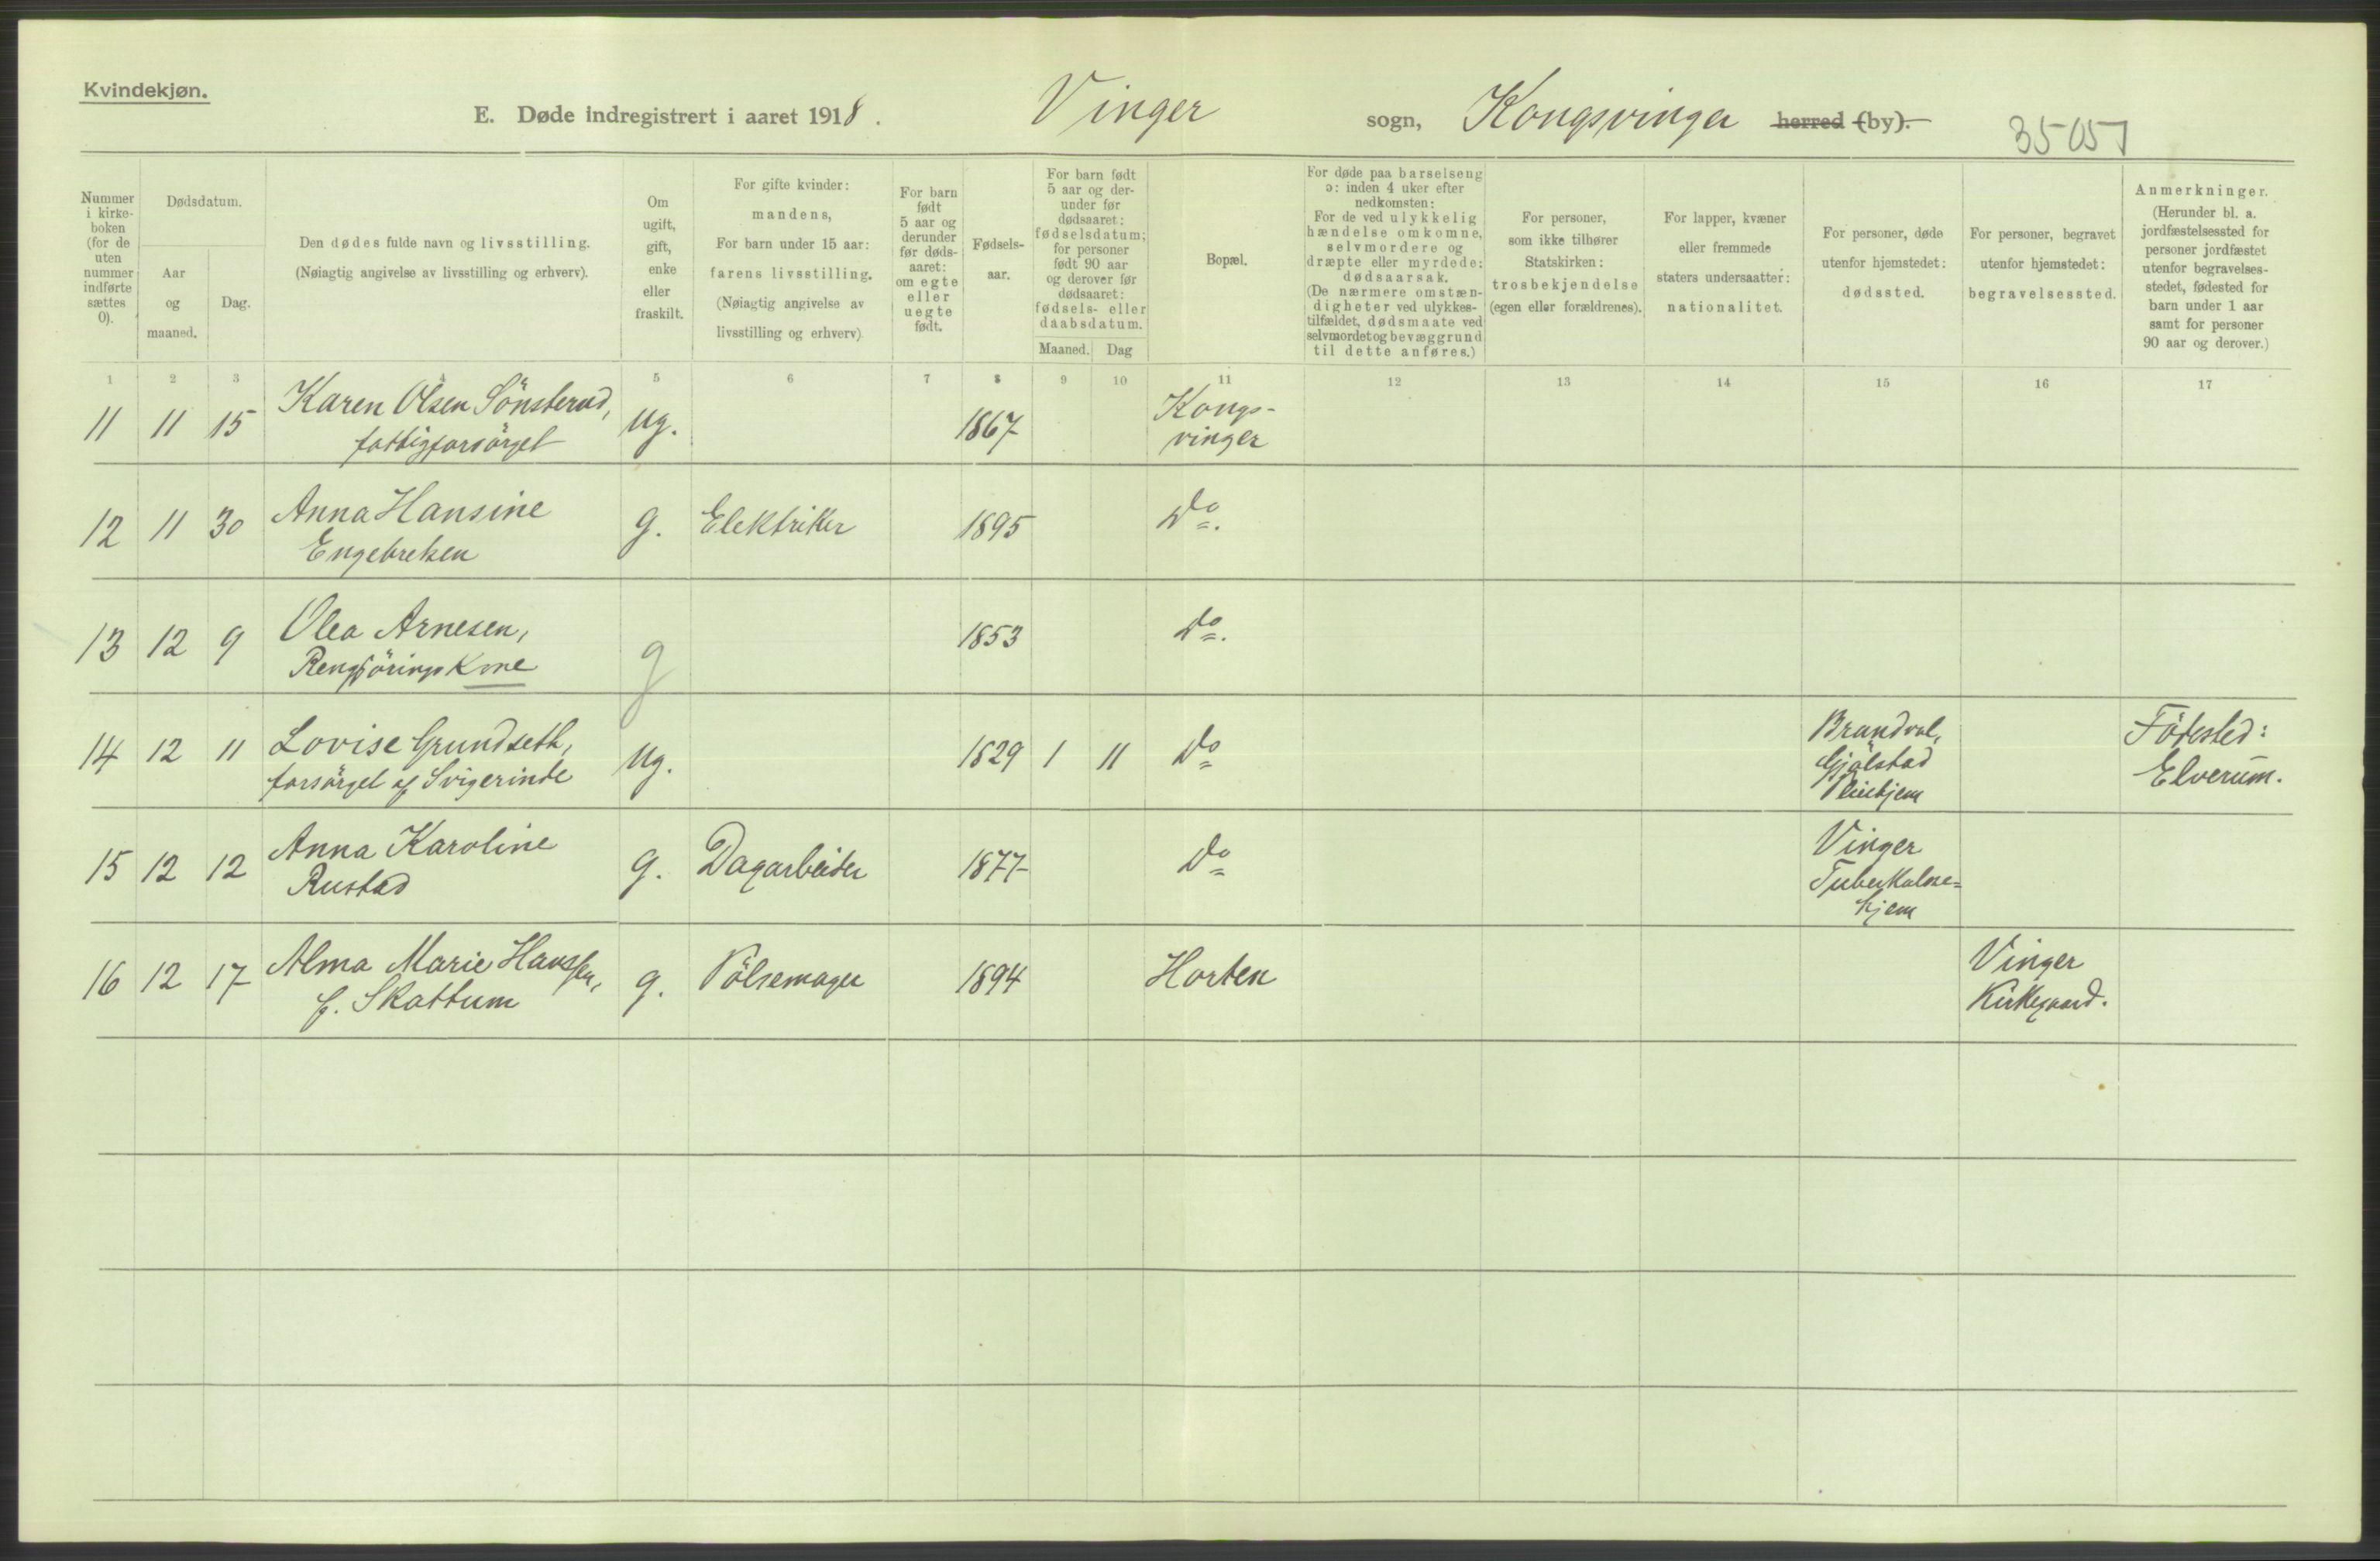 Kvindekjøn.
E. Døde indregistrert i aaret 1918. Vinger sogn, Kongsvinger herred (by).
35 05
Nummer i kirke- boken (for de uten nummer indførte sættes 0).
Dødsdatum.
Aar og maaned.
Dag.
Den dødes fulde navn og livsstilling.
(Nøiagtig angivelse av livsstilling og erhverv).
Om ugift, gift, enke eller fraskilt.
For gifte kvinder: mandens,
For barn under 15 aar: farens livsstilling.
(Nøiagtig angivelse av livsstilling og erhverv)
For barn født 5 aar og derunder før døds- aaret: om egte eller uegte født.
Fødsels- aar.
For barn født 5 aar og der- under før dødsaaret: fødselsdatum; for personer født 90 aar og derover før dødsaaret: fødsels- eller daabsdatum.
Maaned. Dag
Bopæl.
For døde paa barselseng ɔ: inden 4 uker efter nedkomsten:
For de ved ulykkelig hændelse omkomne, selvmordere og dræpte eller myrdede: dødsaarsak.
(De nærmere omstæn- digheter ved ulykkes- tilfældet, dødsmaate ved selvmordet og bevæggrund til dette anføres.)
For personer, som ikke tilhører Statskirken: trosbekjendelse (egen eller forældrenes).
For lapper, kvæner eller fremmede staters undersaatter: nationalitet.
For personer, døde utenfor hjemstedet: dødssted.
For personer, begravet utenfor hjemstedet: begravelsessted.
Anmerkninger.
(Herunder bl. a. jordfæstelsessted for personer jordfæstet utenfor begravelses- stedet, fødested for barn under 1 aar samt for personer 90 aar og derover.)
1 2 3 4 5 6 7 8 9 10 11 12 13 14 15 16 17
11 11 15 Karen Olsen Sönsterud, ug. 1867 Kongs-
fattigforsörget vinger
12 11 30 Anna Hansine g. Elektriker 1895 Do.
Engebretsen
13 12 9 Olea Arnesen, g 1853 Do.
Rengjörings Kone
14 12 11 Lovise Grundseth, ug. 1829 1 11 Do Brandval, Födested:
forsörget af Svigerinde Gjölstad Elverum.
Pleiehjem
15 12 12 Anna Karoline g. Dagarbeider 1877 Do Vinger
Rustad Tuberkulose-
hjem
16 12 17 Alma Marie Hanssen, g. Pölsemager 1894 Horten Vinger
f. Skattum Kirkegaard.